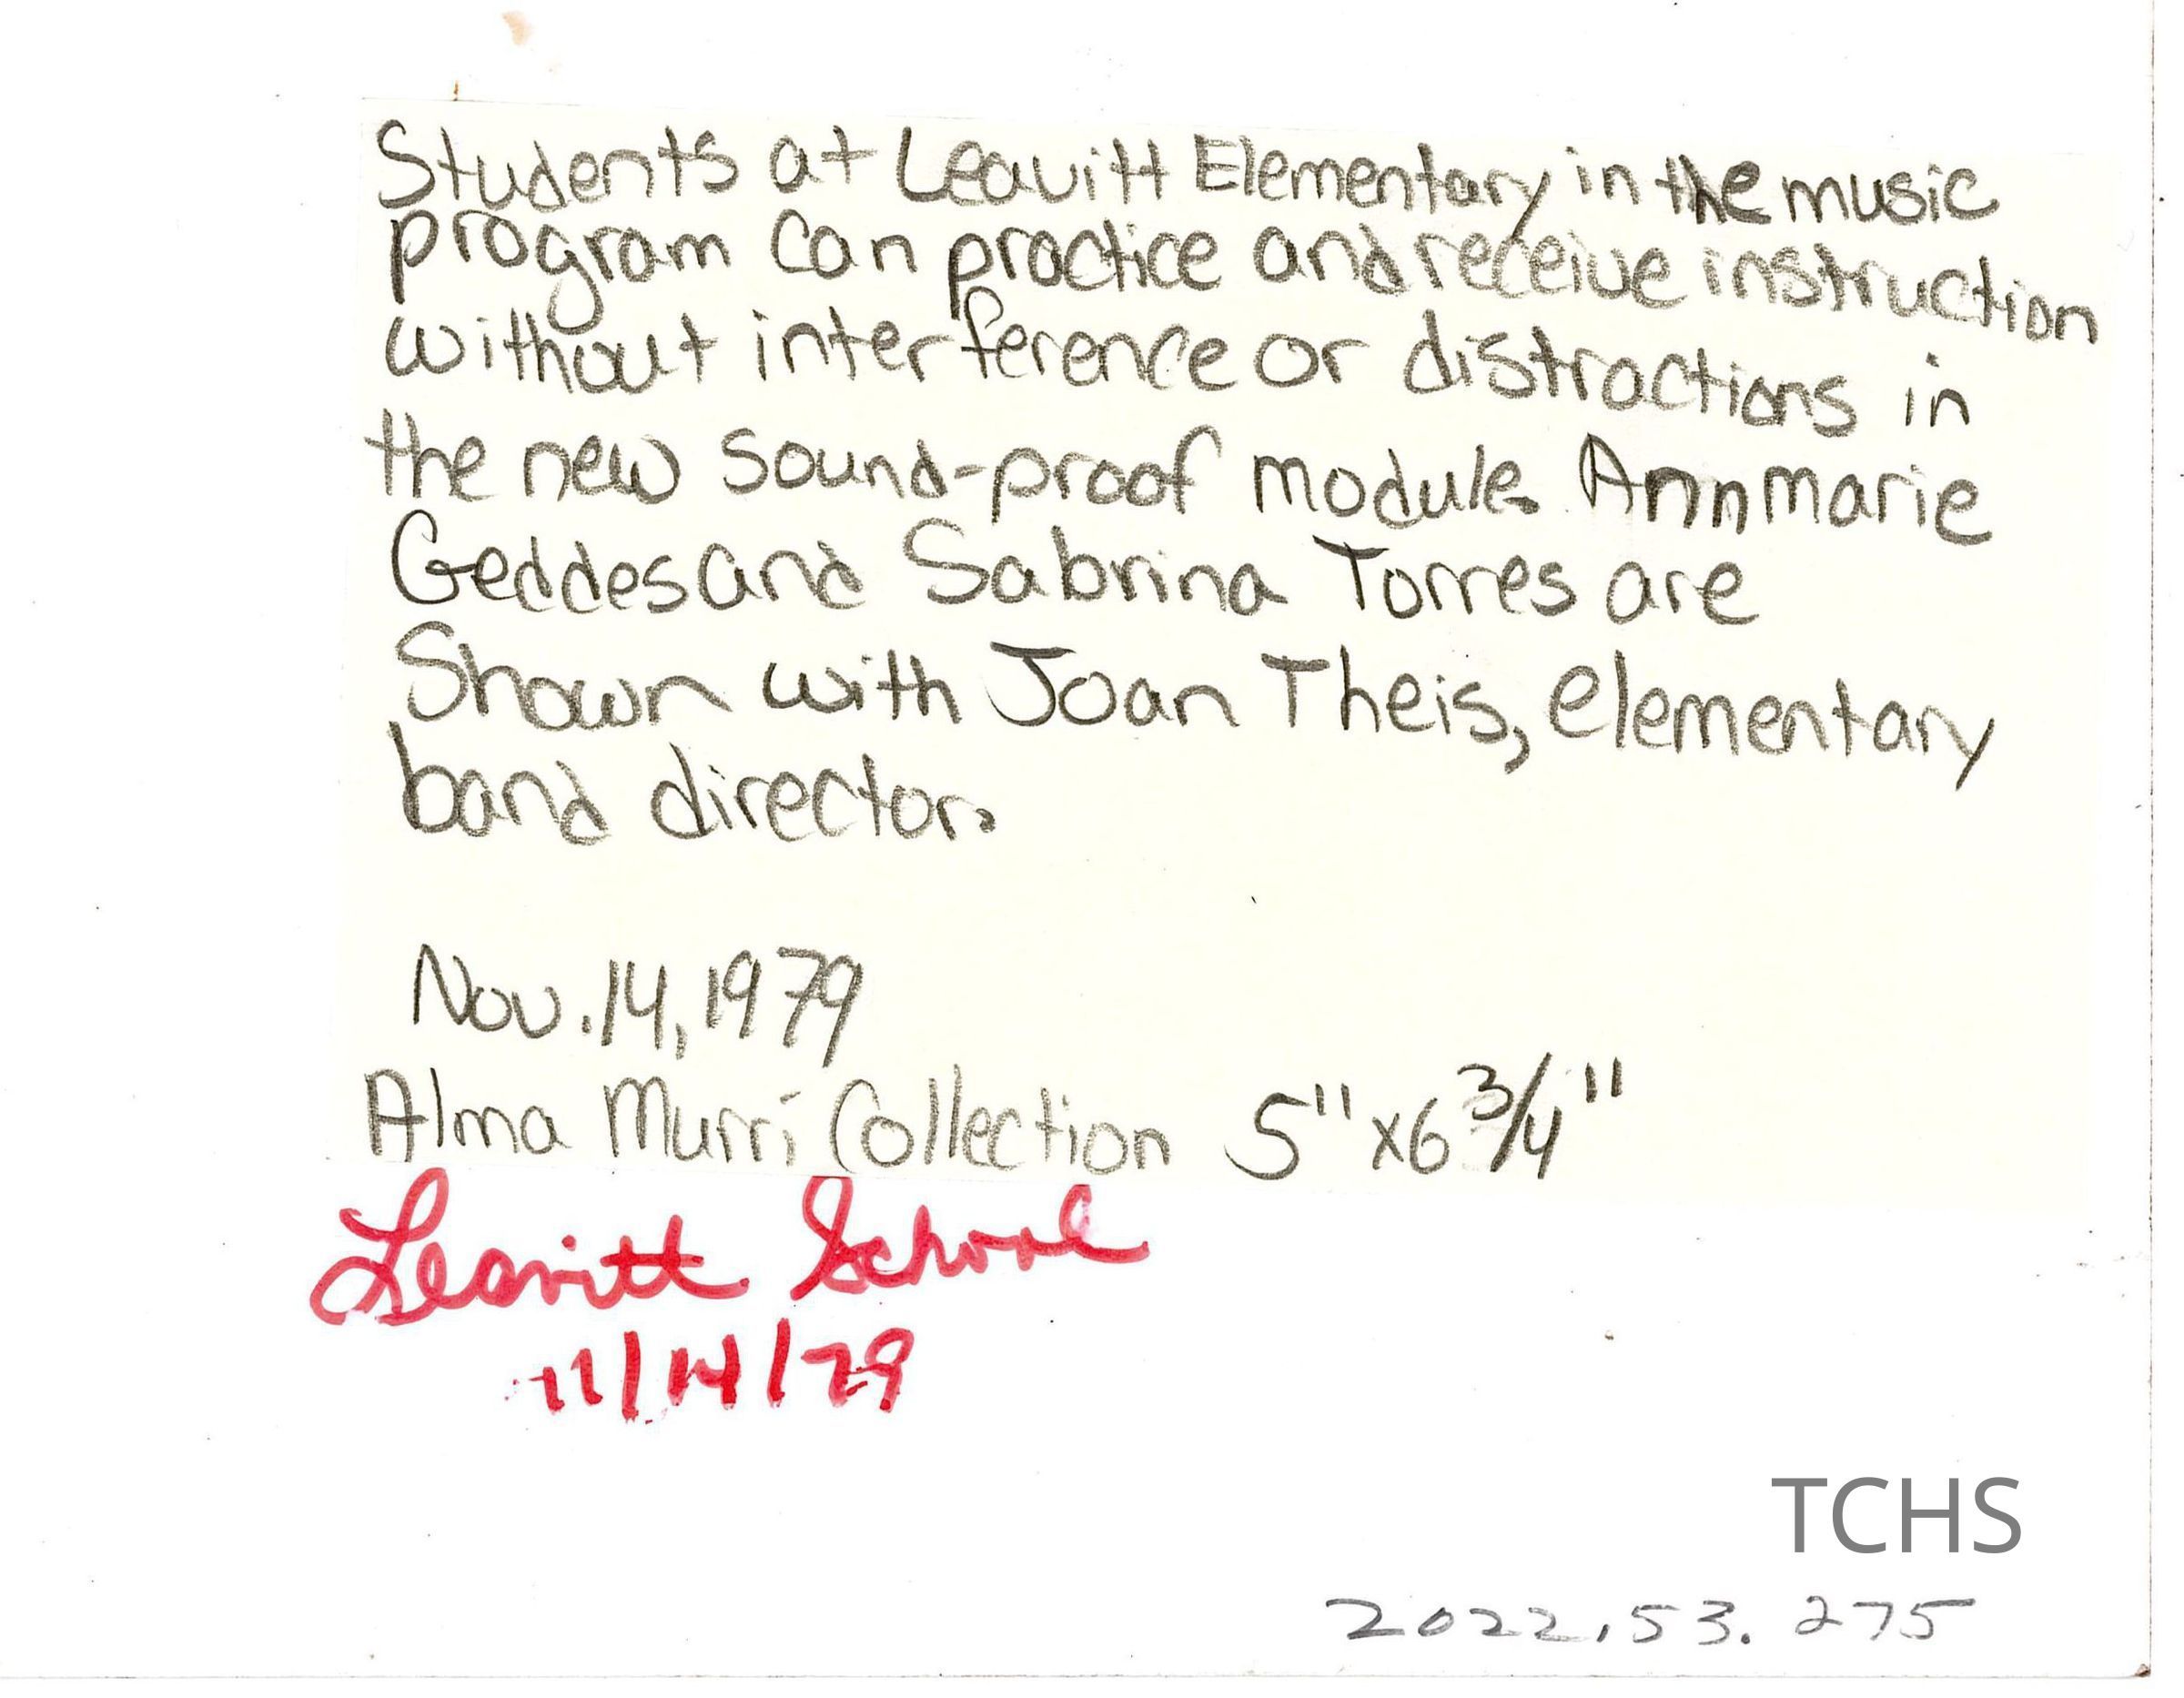 Students at Leavitt Elementary in the music
program can practice and receive instruction
without interference or distractions in
the new sound-proof module. Annmarie
Geddes and Sabrina Torres are
Shown with Joan Theis, elementary
band director.
Nov. 14, 1979
Alma Murri Collection 5" x 6 3/4"
Leavitt School
11/14/79
TCHS
2022.53.275